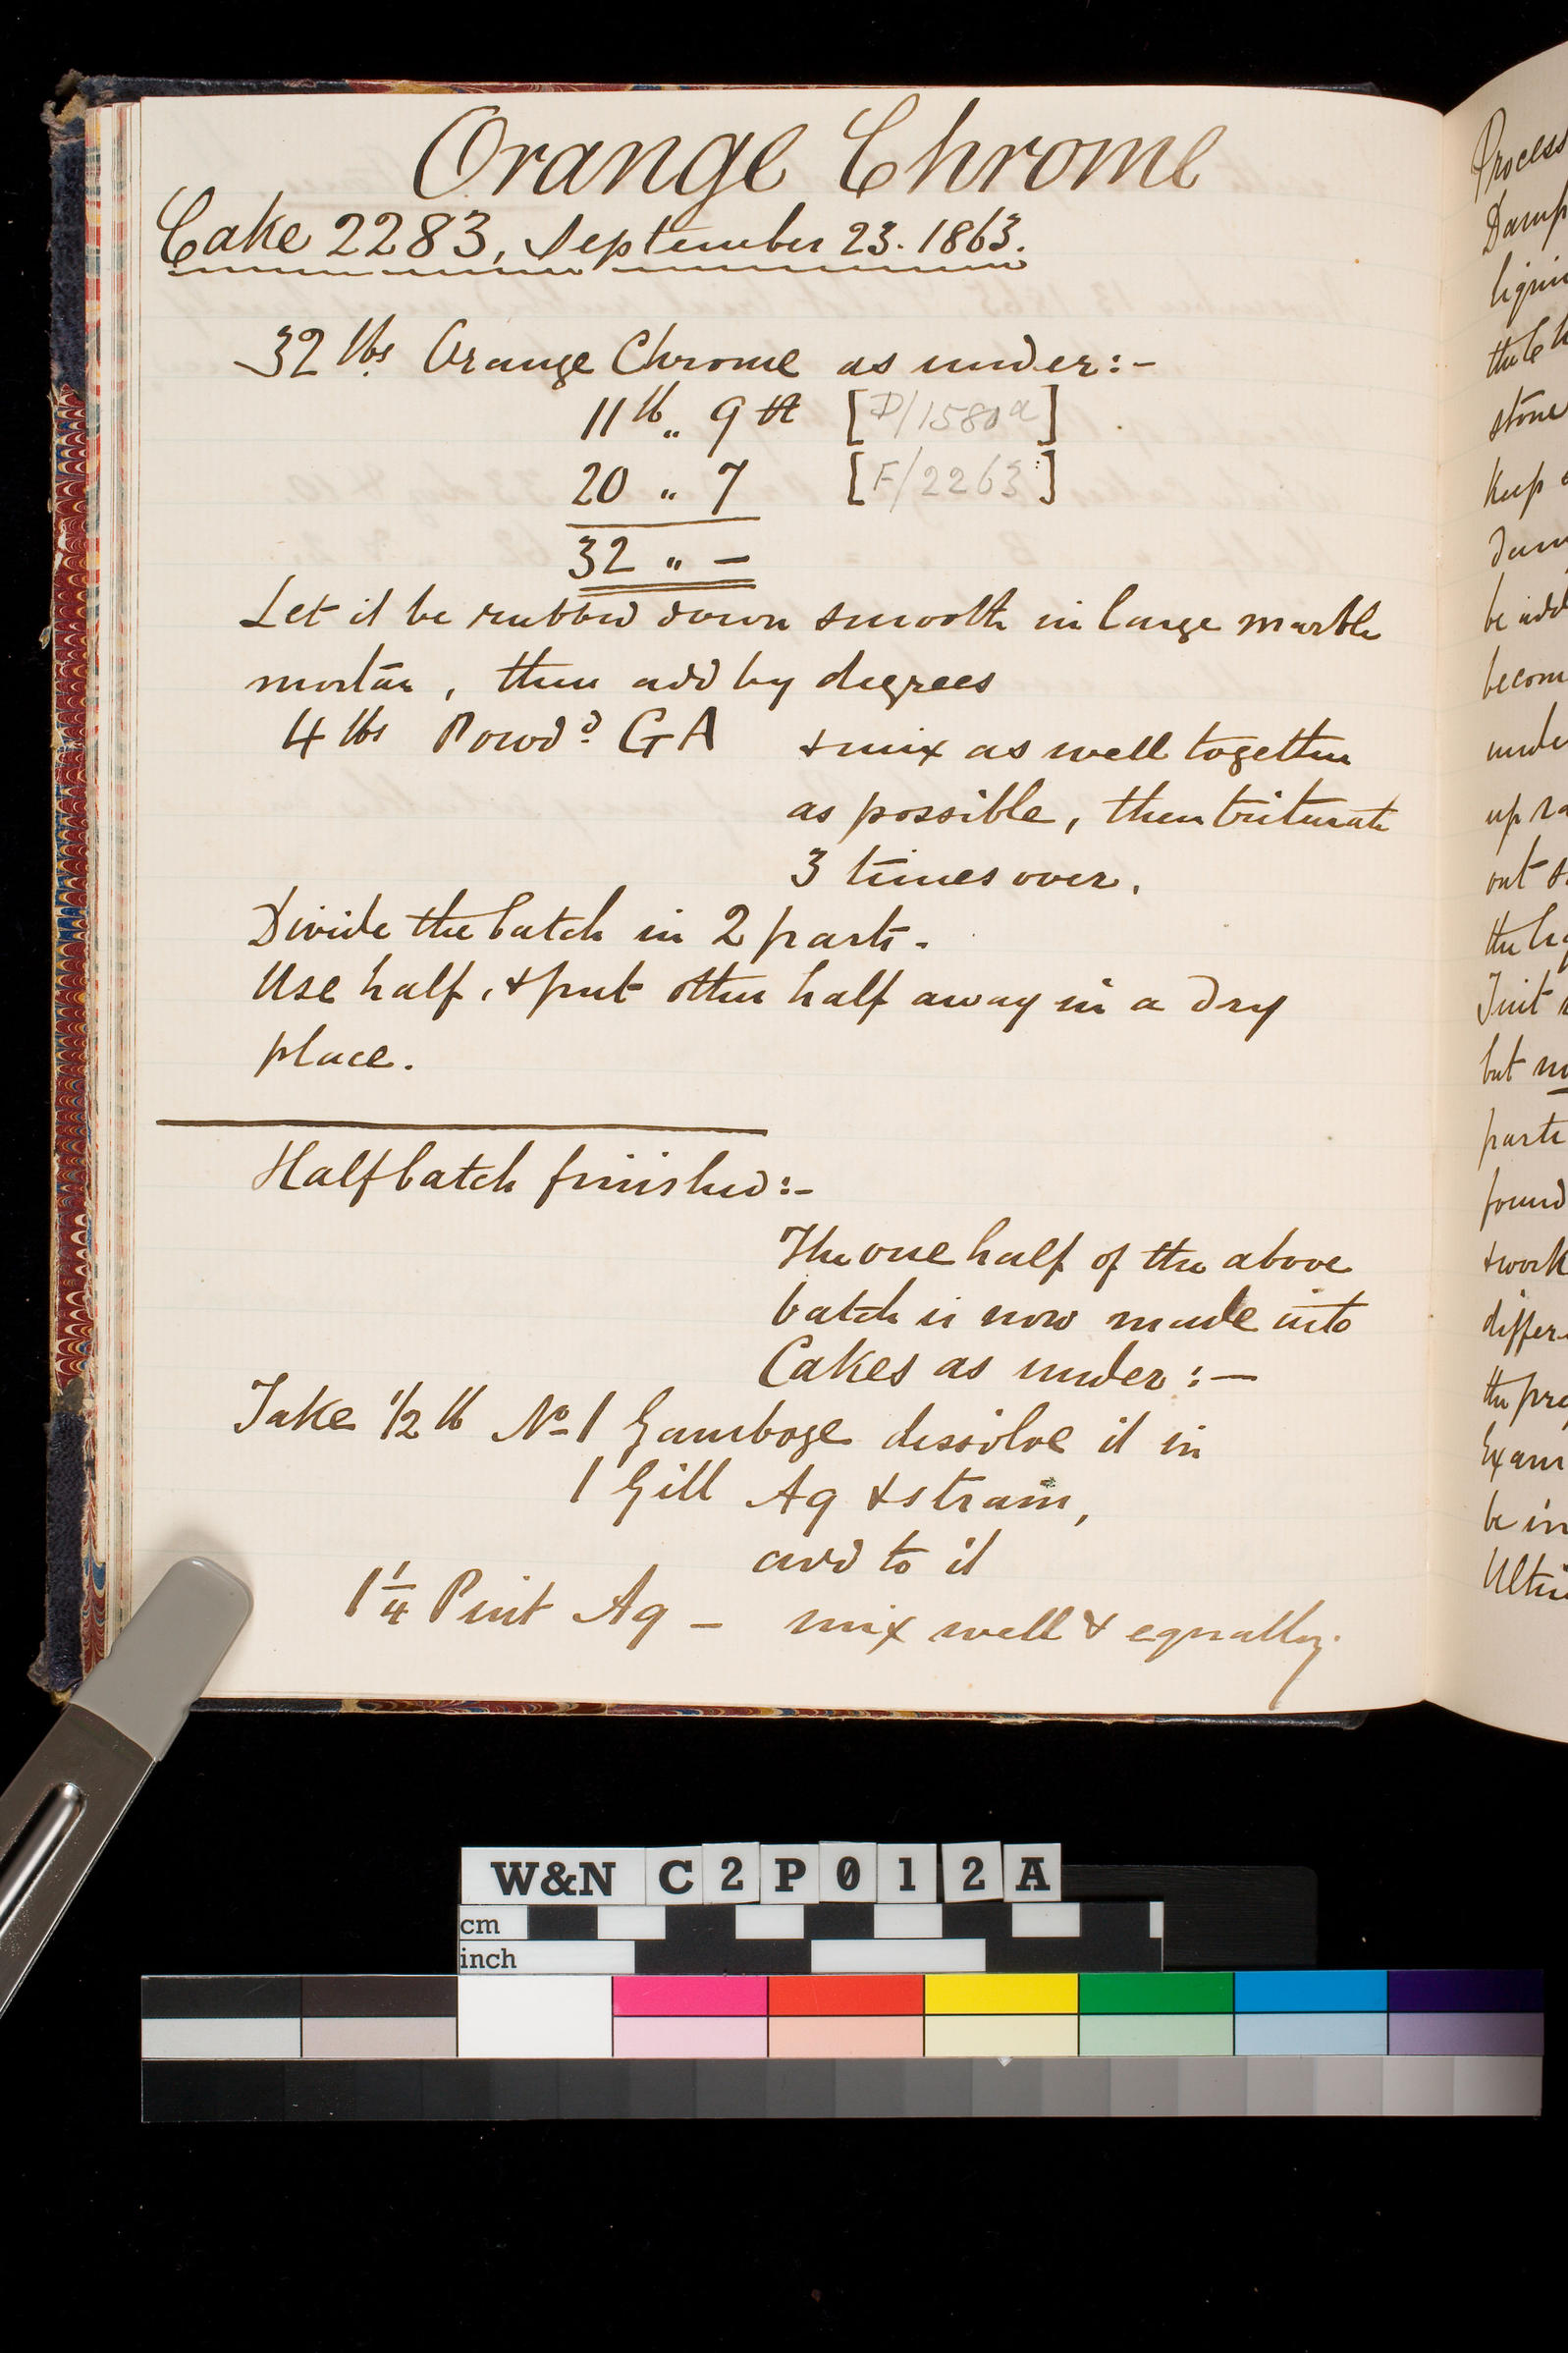 Orange Chrome
Cake 2283, September 23. 1863.
32 lbs Orange Chrome as under:-
11 lb „ 9 [D/1580a]
20 „ 7 [F/2263]
32 „ –
Let it be rubbed down smooth in large marble
mortar, then add by degrees
4 lbs Powdd. GA & mix as well together
as possible, then triturate
3 times over.
Divide the batch in 2 parts.
Use half, & put other half away in a dry
place.
Half batch finished:-
The one half of the above
batch is now made into
Cakes as under:—
Take 1/2 lb No 1 Gamboge dissolve it in
1 Gill Aq & strain,
add to it
1 1/4 Pint Aq – mix well & equally.
Process
Damp
liquir
the Ch
stone
Keep
dam
be add
becom
unde
up ra
out
the liq
Tint
but
parts
found
& work
differ
the pro
Exam
be in
Ultim
W&N C2P012A
cm
inch